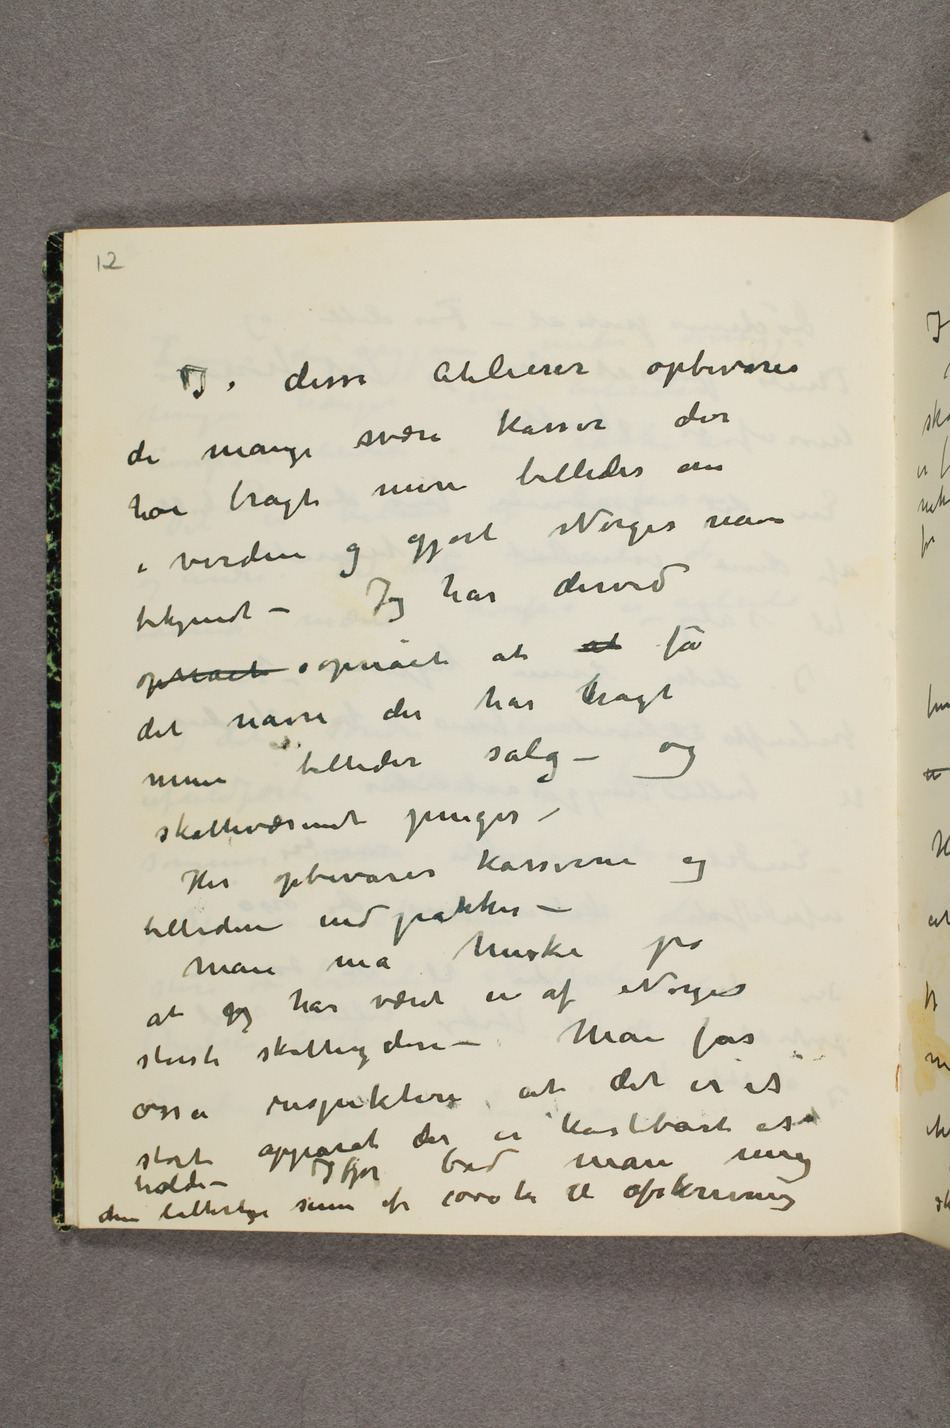 12
I disse Atelierer opbevares
de mange svære Kasser der
har bragt mine billeder om
i verden og gjort Norges navn
bekjendt – Jeg har derved
opnået opnået at at få
det navn der har bragt
mine billeder salg – og
skattevæsenet penger –
Her opbevares kasserne og
billedene indpakkes –
Man må huske på
at jeg har været en af Norges
største skatteydere – Man får
osså respektere at det er et
stort apparat der er kostbart at
holde – Ifjor bød man mig
den latterlige sum af 1000 kr til afskrivning